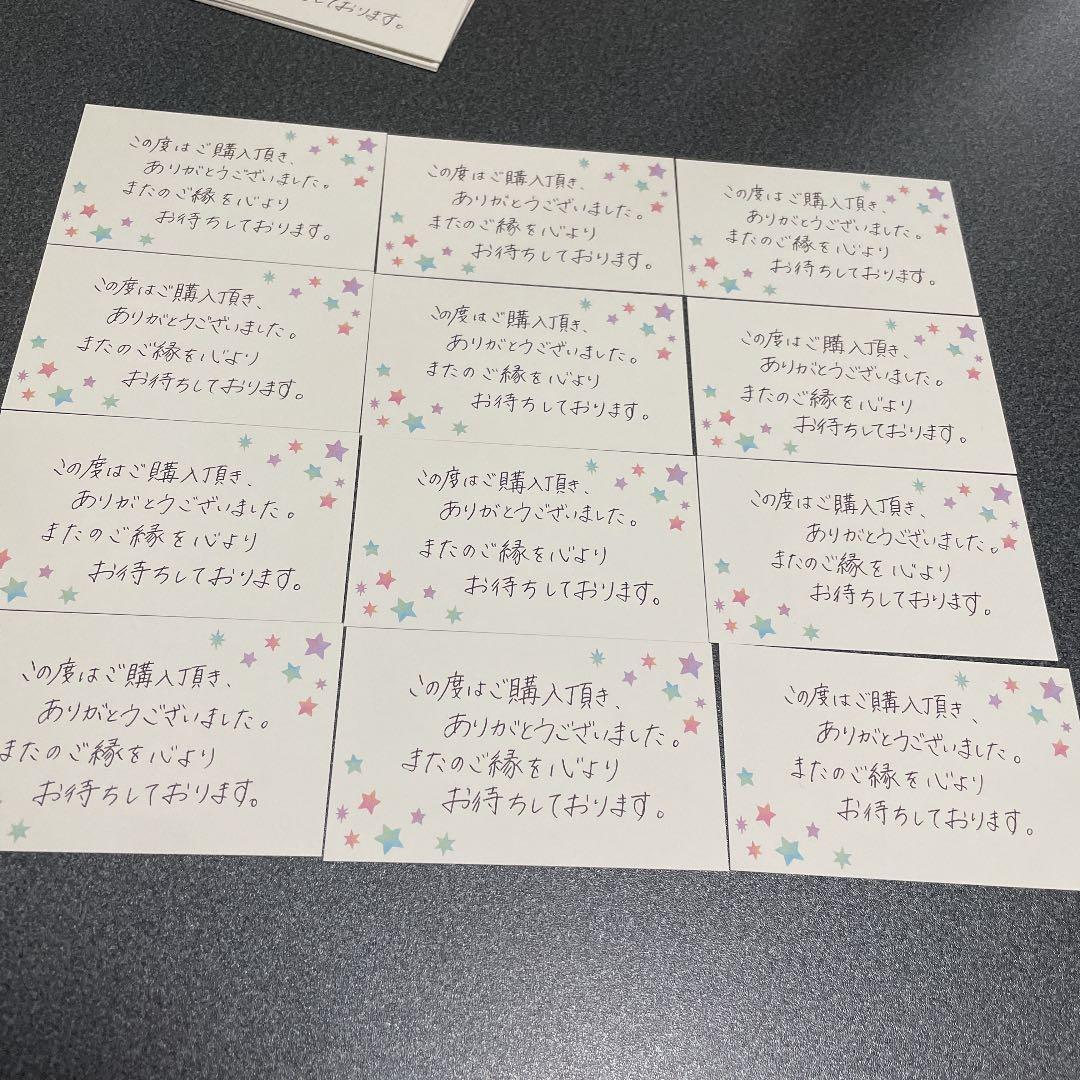 しております。
この度はご購入頂き、
ありがとうございました。
またのご縁を心より
お待ちしております。
この度はご購入頂き、
ありがとうございました。
またのご縁を心より
お待ちしております。
この度はご購入頂き、
ありがとうございました。
またのご縁を心より
お待ちしております。
この度はご購入頂き、
ありがとうございました。
またのご縁を心より
お待ちしております。
この度はご購入頂き、
ありがとうございました。
またのご縁を心より
お待ちしております。
この度はご購入頂き、
ありがとうございました。
またのご縁を心より
お待ちしております。
この度はご購入頂き、
ありがとうございました。
またのご縁を心より
お待ちしております。
この度はご購入頂き、
ありがとうございました。
またのご縁を心より
お待ちしております。
この度はご購入頂き、
ありがとうございました。
またのご縁を心より
お待ちしております。
この度はご購入頂き、
ありがとうございました。
またのご縁を心より
お待ちしております。
この度はご購入頂き、
ありがとうございました。
またのご縁を心より
お待ちしております。
この度はご購入頂き、
ありがとうございました。
またのご縁を心より
お待ちしております。